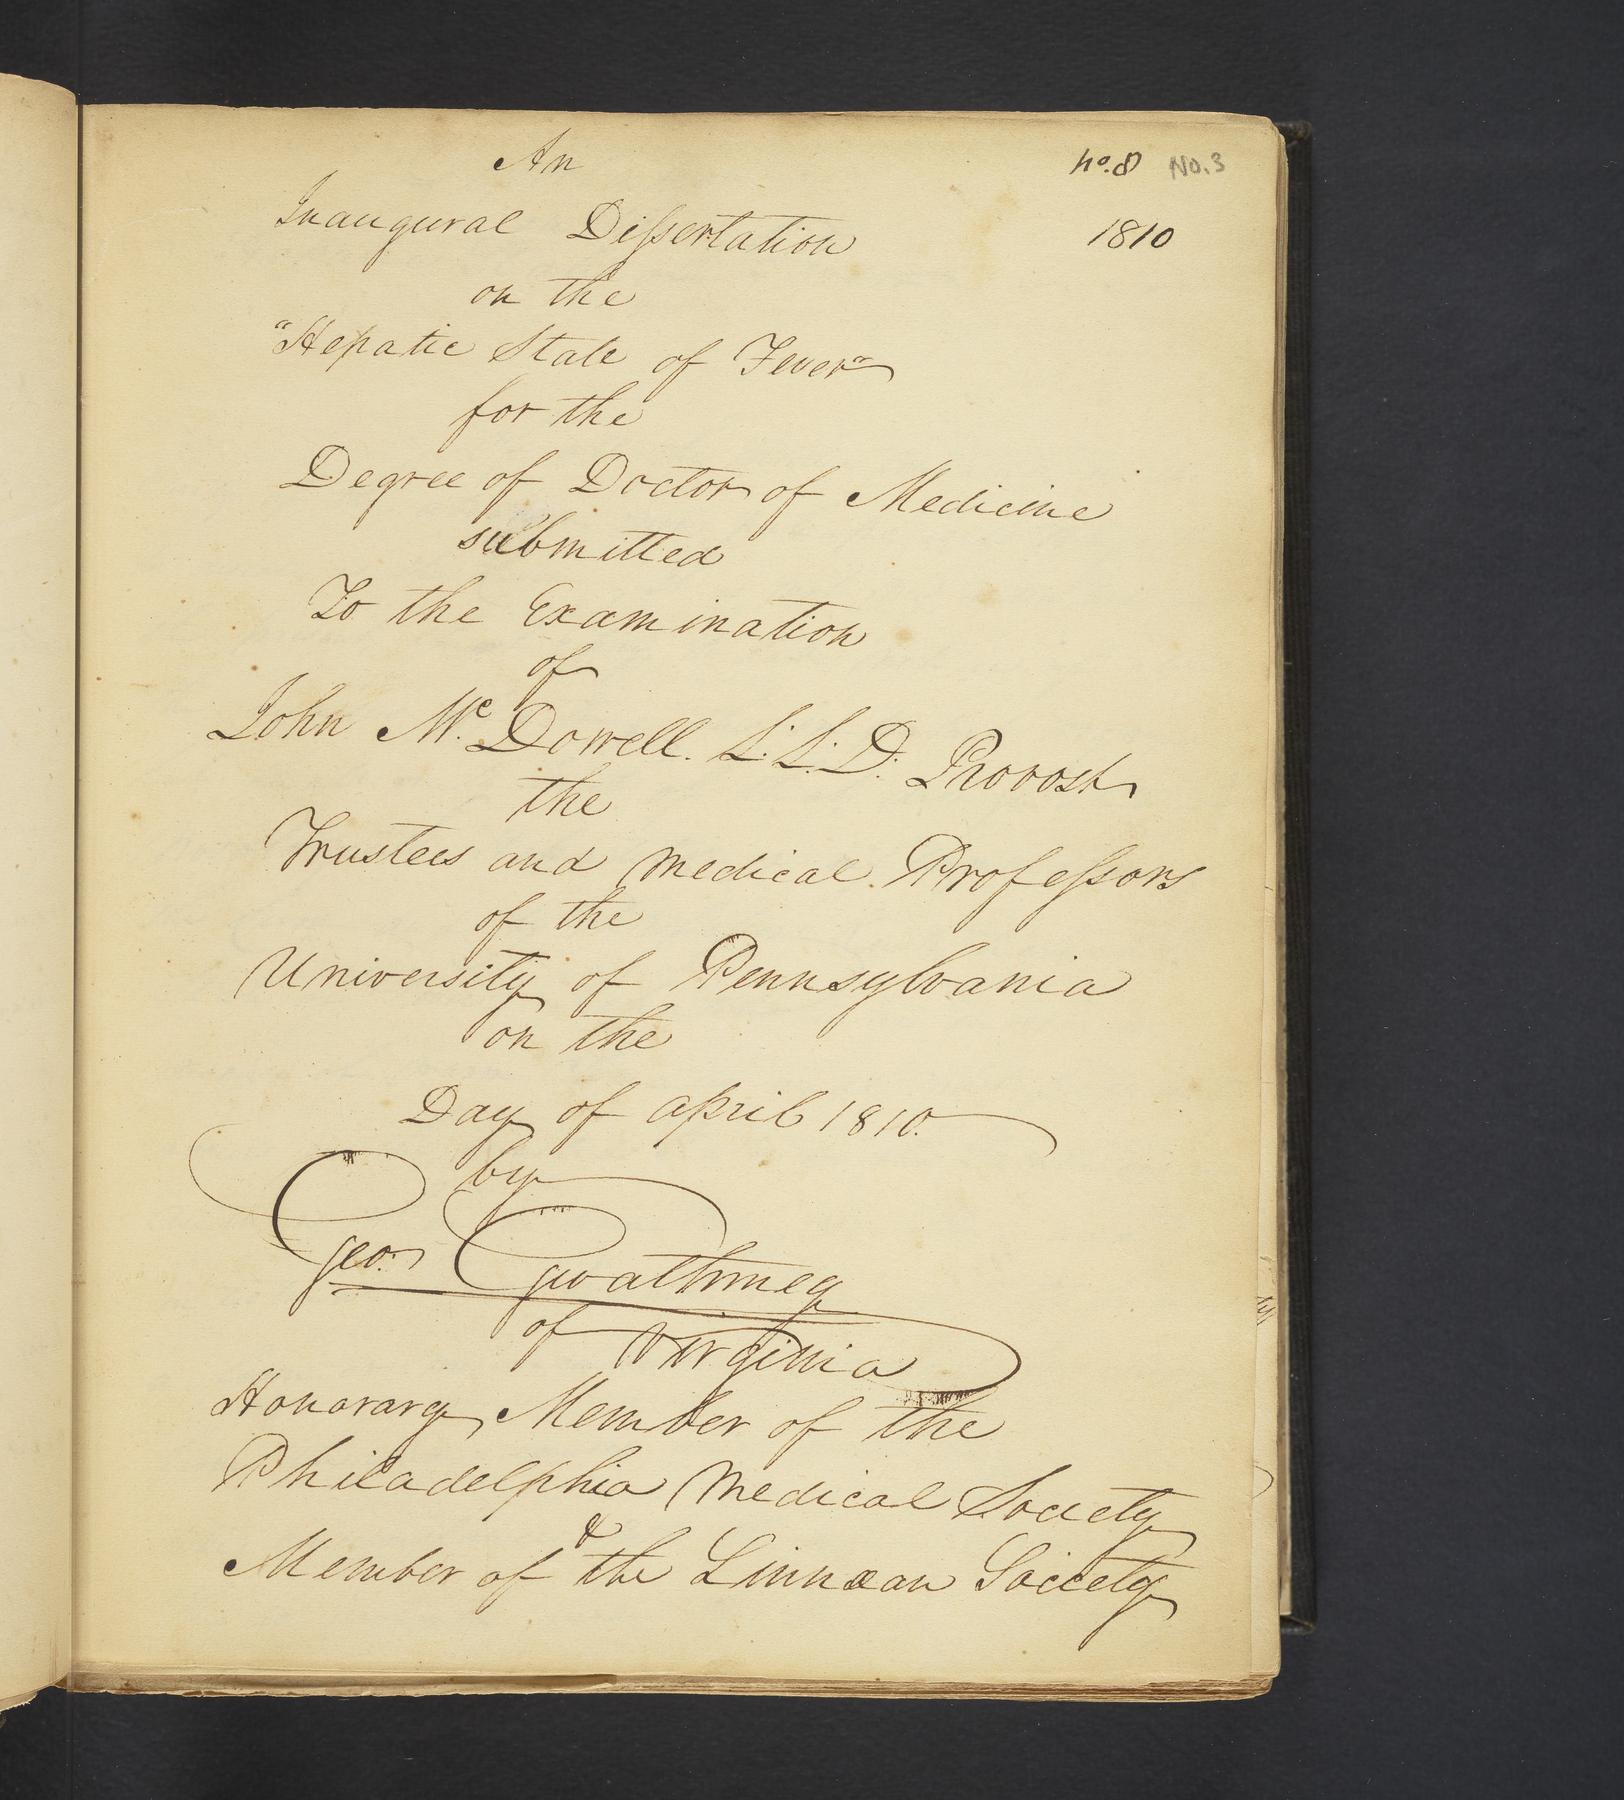 An
no. 8 No. 3
Inaugural Dissertation
1810
on the
"Hepatic State of Fever"
for the
Degree of Doctor of Medicine
submitted
To the Examination
of
John Mc. Dowell. L.L.D. Provost
the
Trustees and medical Professors
of the
University of Pennsylvania
on the
Day of april 1810.
by
Geo: Gwathmey
of Virginia
Honorary Member of the
Philadelphia Medical Society
&
Member of the Linnæan Society